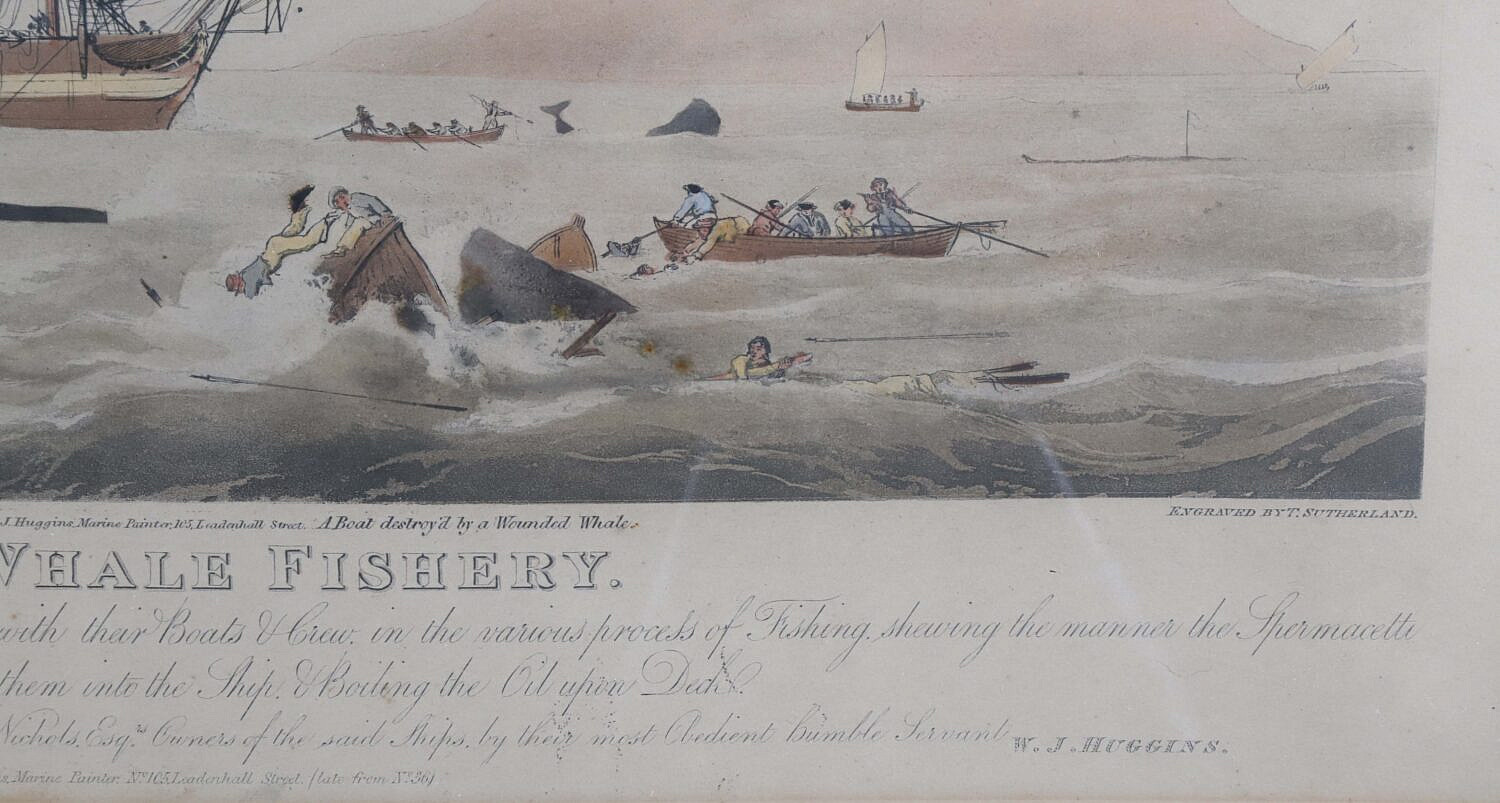 J. Huggins, Marine Painter, 105, Leadenhall Street. A Boat destroy'd by a Wounded Whale.
ENGRAVED BY T. SUTHERLAND.
WHALE FISHERY.
with their Boats & Crew, in the various process of Fishing, shewing the manner the Spermacetti
them into the Ship, & Boiling the Oil upon Deck.
Nichols, Esqrs. Owners of the said Ships, by their most Obedient humble Servant W. J. HUGGINS.
Marine Painter, No. 105, Leadenhall Street, (late from No. 36)